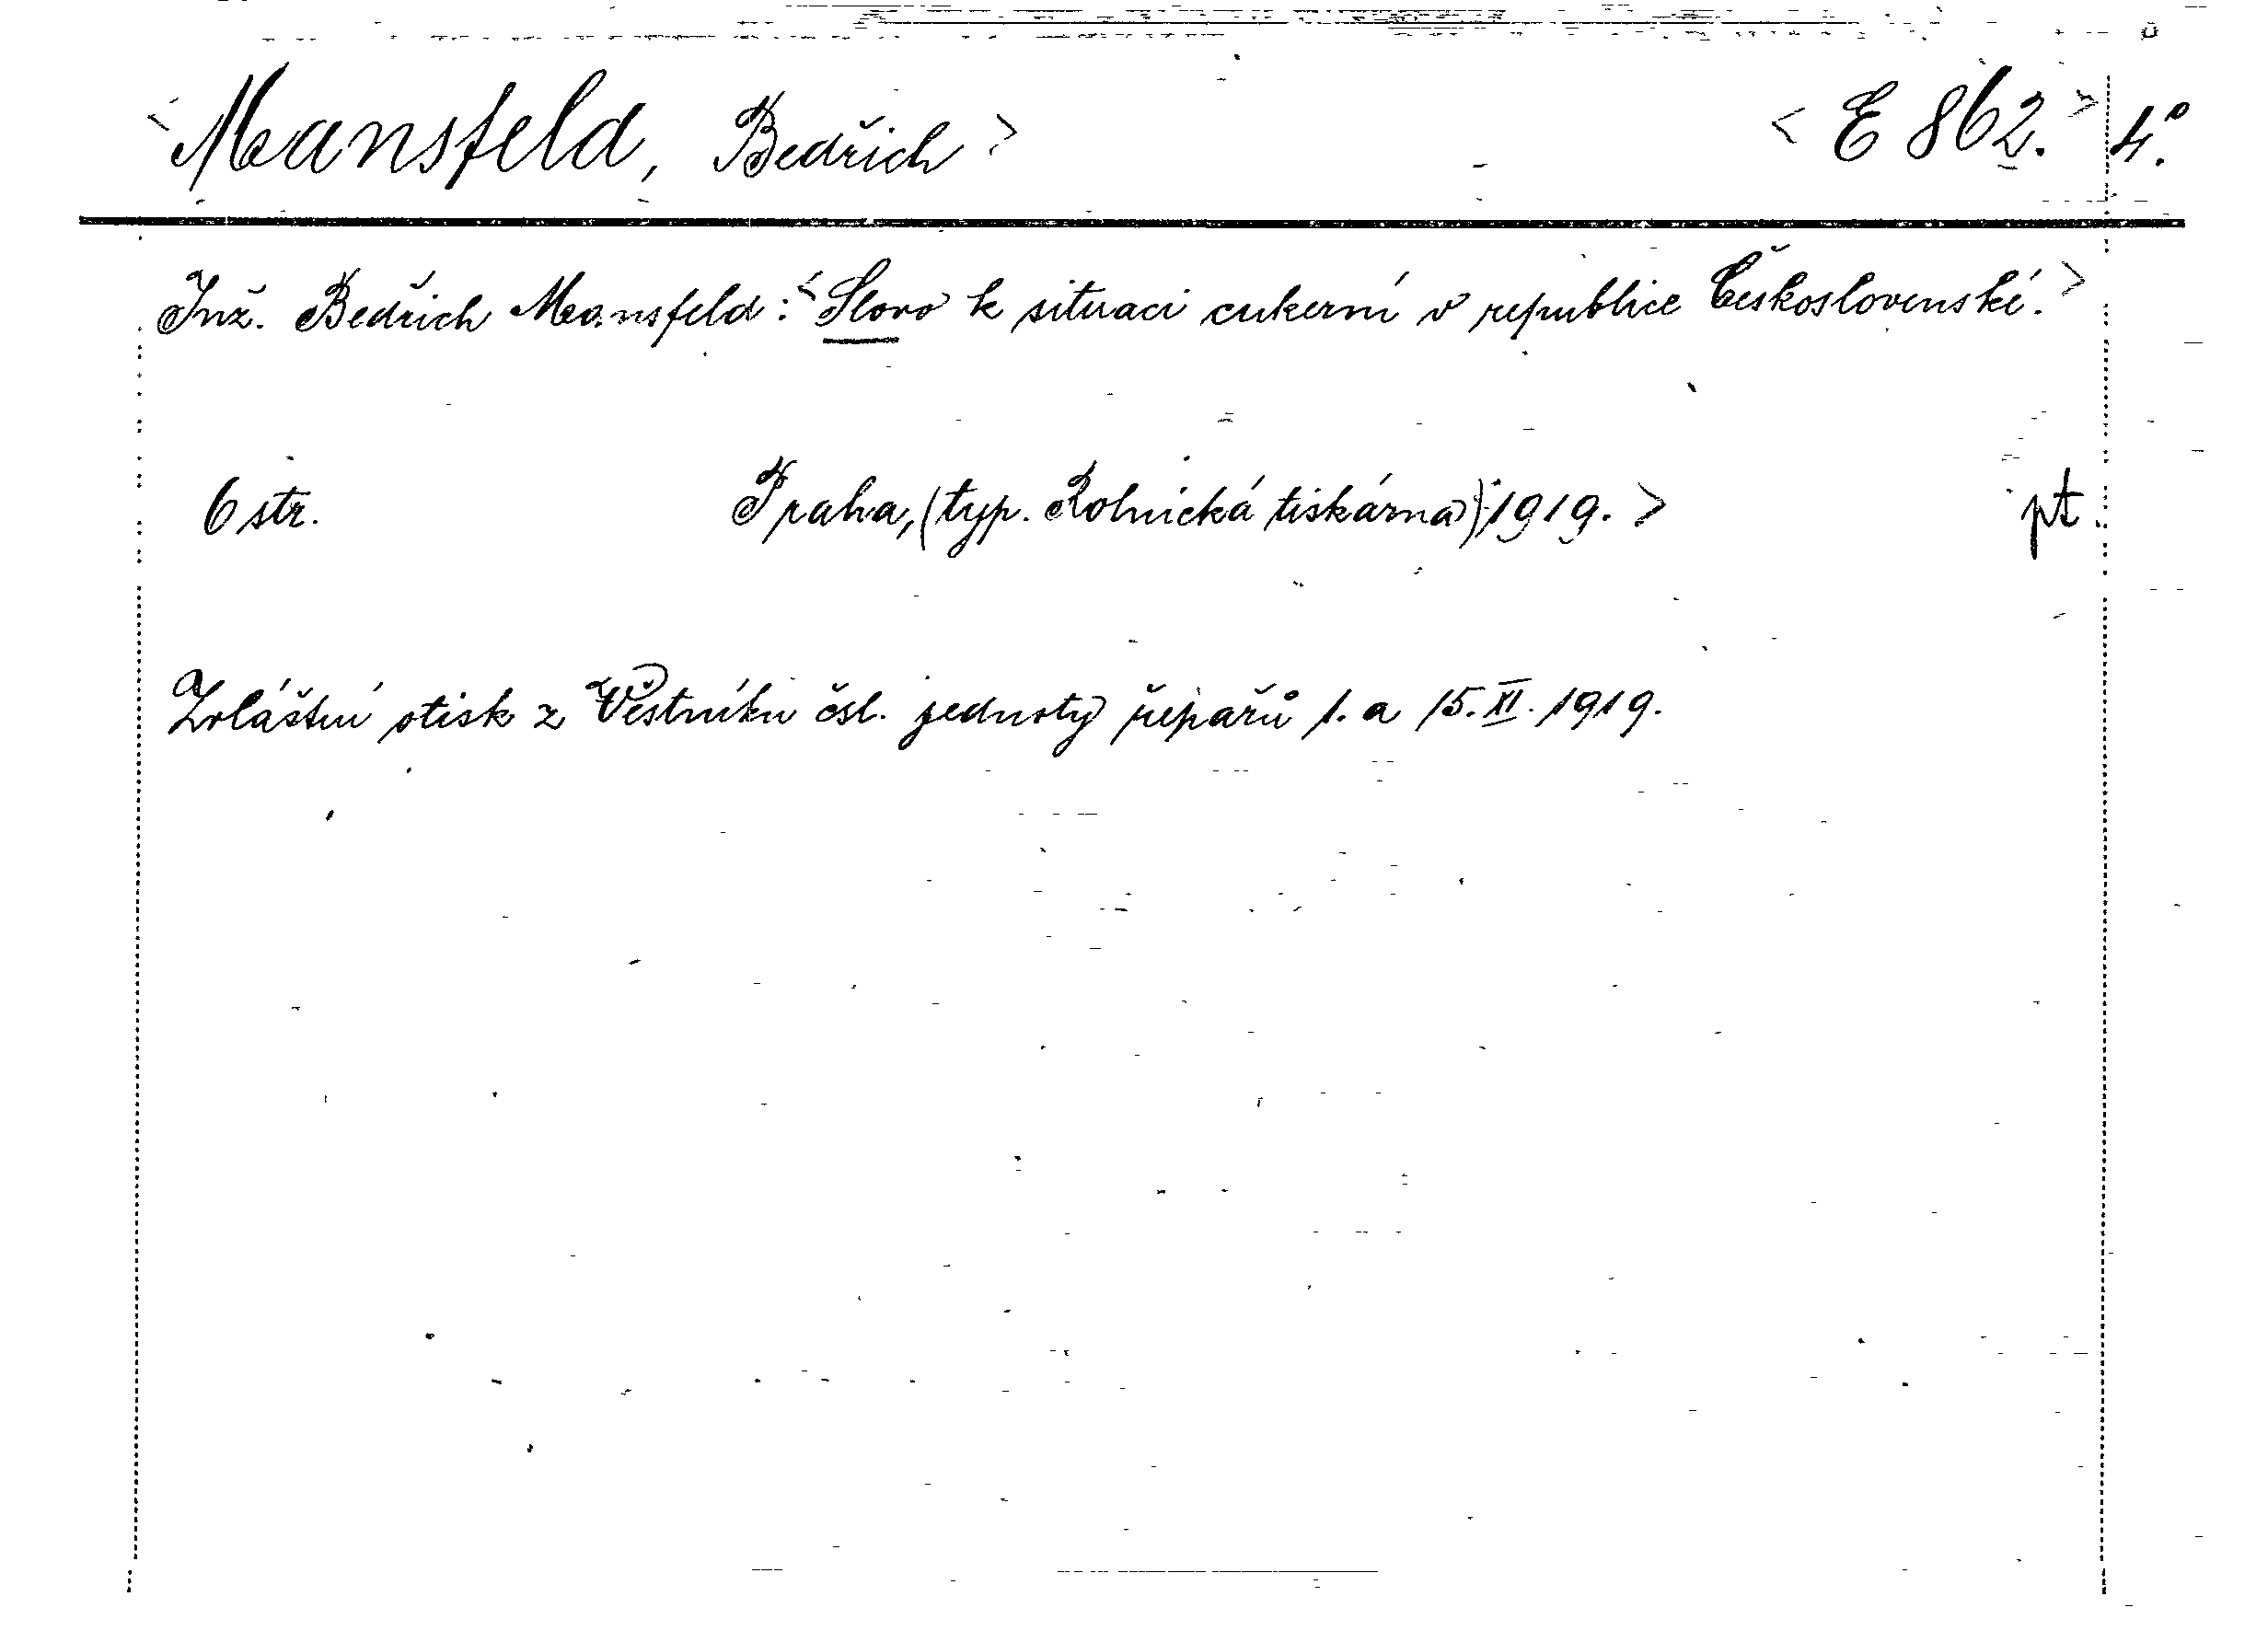 <Mansfeld, Bedřich> <E 862.> 4.°
Inž. Bedřich Mansfeld: <Slovo k situaci cukerní v republice Československé.>
6 str. Praha, (typ. Rolnická tiskárna) 1919. > pt.
Zvláštní otisk z Věstníku čsl. jednoty řepařů 1. a 15. XI. 1919.